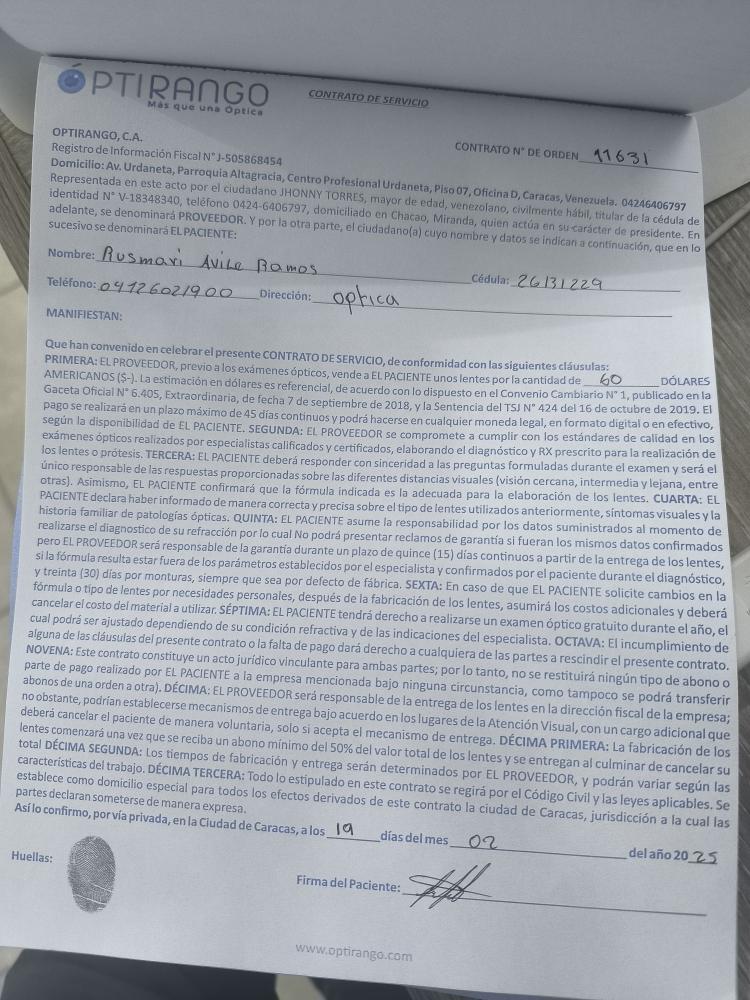 ÓPTIRANGO
Más que una Óptica
CONTRATO DE SERVICIO
OPTIRANGO, C.A.
CONTRATO N° DE ORDEN 11631
Registro de Información Fiscal N° J-505868454
Domicilio: Av. Urdaneta, Parroquia Altagracia, Centro Profesional Urdaneta, Piso 07, Oficina D, Caracas, Venezuela. 04246406797
Representada en este acto por el ciudadano JHONNY TORRES, mayor de edad, venezolano, civilmente hábil, titular de la cédula de
identidad N° V-18348340, teléfono 0424-6406797, domiciliado en Chacao, Miranda, quien actúa en su carácter de presidente. En
adelante, se denominará PROVEEDOR. Y por la otra parte, el ciudadano(a) cuyo nombre y datos se indican a continuación, que en lo
sucesivo se denominará EL PACIENTE:
Nombre: Rusmari Avile Ramos Cédula: 26131229
Teléfono: 04126021900 Dirección: optica
MANIFIESTAN:
Que han convenido en celebrar el presente CONTRATO DE SERVICIO, de conformidad con las siguientes cláusulas:
PRIMERA: EL PROVEEDOR, previo a los exámenes ópticos, vende a EL PACIENTE unos lentes por la cantidad de 60 DÓLARES
AMERICANOS ($-). La estimación en dólares es referencial, de acuerdo con lo dispuesto en el Convenio Cambiario N° 1, publicado en la
Gaceta Oficial N° 6.405, Extraordinaria, de fecha 7 de septiembre de 2018, y la Sentencia del TSJ N° 424 del 16 de octubre de 2019. El
pago se realizará en un plazo máximo de 45 días continuos y podrá hacerse en cualquier moneda legal, en formato digital o en efectivo,
según la disponibilidad de EL PACIENTE. SEGUNDA: EL PROVEEDOR se compromete a cumplir con los estándares de calidad en los
exámenes ópticos realizados por especialistas calificados y certificados, elaborando el diagnóstico y RX prescrito para la realización de
los lentes o prótesis. TERCERA: EL PACIENTE deberá responder con sinceridad a las preguntas formuladas durante el examen y será el
único responsable de las respuestas proporcionadas sobre las diferentes distancias visuales (visión cercana, intermedia y lejana, entre
otras). Asimismo, EL PACIENTE confirmará que la fórmula indicada es la adecuada para la elaboración de los lentes. CUARTA: EL
PACIENTE declara haber informado de manera correcta y precisa sobre el tipo de lentes utilizados anteriormente, síntomas visuales y la
historia familiar de patologías ópticas. QUINTA: EL PACIENTE asume la responsabilidad por los datos suministrados al momento de
realizarse el diagnostico de su refracción por lo cual No podrá presentar reclamos de garantía si fueran los mismos datos confirmados
pero EL PROVEEDOR será responsable de la garantía durante un plazo de quince (15) días continuos a partir de la entrega de los lentes,
si la fórmula resulta estar fuera de los parámetros establecidos por el especialista y confirmados por el paciente durante el diagnóstico,
y treinta (30) días por monturas, siempre que sea por defecto de fábrica. SEXTA: En caso de que EL PACIENTE solicite cambios en la
fórmula o tipo de lentes por necesidades personales, después de la fabricación de los lentes, asumirá los costos adicionales y deberá
cancelar el costo del material a utilizar. SÉPTIMA: EL PACIENTE tendrá derecho a realizarse un examen óptico gratuito durante el año, el
cual podrá ser ajustado dependiendo de su condición refractiva y de las indicaciones del especialista. OCTAVA: El incumplimiento de
alguna de las cláusulas del presente contrato o la falta de pago dará derecho a cualquiera de las partes a rescindir el presente contrato.
NOVENA: Este contrato constituye un acto jurídico vinculante para ambas partes; por lo tanto, no se restituirá ningún tipo de abono o
parte de pago realizado por EL PACIENTE a la empresa mencionada bajo ninguna circunstancia, como tampoco se podrá transferir
abonos de una orden a otra). DÉCIMA: EL PROVEEDOR será responsable de la entrega de los lentes en la dirección fiscal de la empresa;
no obstante, podrían establecerse mecanismos de entrega bajo acuerdo en los lugares de la Atención Visual, con un cargo adicional que
deberá cancelar el paciente de manera voluntaria, solo si acepta el mecanismo de entrega. DÉCIMA PRIMERA: La fabricación de los
lentes comenzará una vez que se reciba un abono mínimo del 50% del valor total de los lentes y se entregan al culminar de cancelar su
total DÉCIMA SEGUNDA: Los tiempos de fabricación y entrega serán determinados por EL PROVEEDOR, y podrán variar según las
características del trabajo. DÉCIMA TERCERA: Todo lo estipulado en este contrato se regirá por el Código Civil y las leyes aplicables. Se
establece como domicilio especial para todos los efectos derivados de este contrato la ciudad de Caracas, jurisdicción a la cual las
partes declaran someterse de manera expresa.
Así lo confirmo, por vía privada, en la Ciudad de Caracas, a los 19 días del mes 02 del año 2025
Huellas:
Firma del Paciente:
www.optirango.com